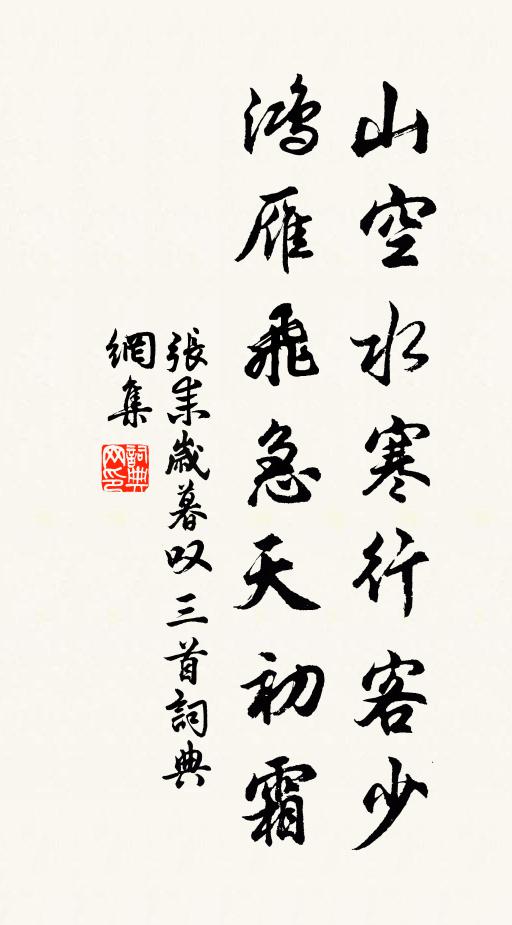 山空水寒行客少
鸿雁飛急天初霜
張耒歲暮叹三首詞典
網集
詞典网印